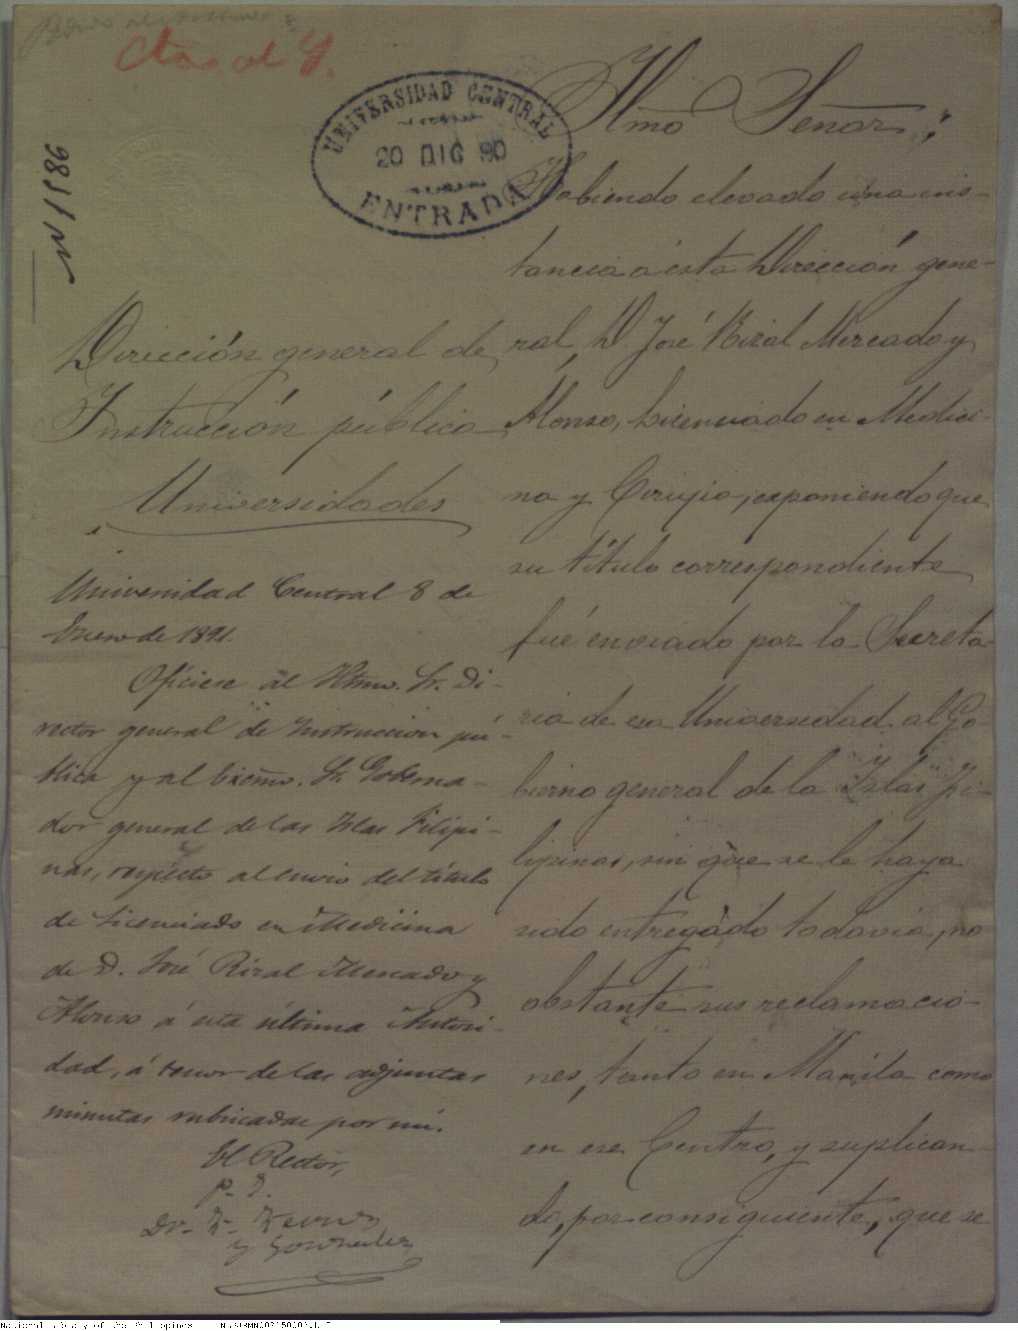 Ctas al 4.
UNIVERSIDAD CENTRAL
20 DIC 90
ENTRADA
N 1186
Dirección general de
Instrucción pública
Universidades
Universidad Central 8 de
Enero de 1891.
Ofíciese al Iltmo. Sr. Di-
rector general de Instrucción pú-
blica y al Excmo. Sr. Goberna-
dor general de las Islas Filipi-
nas, respecto al envío del título
de Licenciado en Medicina
de D. José Rizal Mercado y
Alonso á esta última Autori-
dad, á tenor de las adjuntas
minutas rubricadas por mí.
El Rector,
Dr. F.
y González
Ilmo Señor:
Habiendo elevado una ins-
tancia á esta Dirección gene-
ral, D José Rizal Mercado y
Alonso, Licenciado en Medici-
na y Cirujía, exponiendo que
su título correspondiente
fué enviado por la Secreta-
ria de esa Universidad al Go-
bierno general de la Islas Fi-
lipinas, sin que se le haya
sido entregado todavía, no
obstante sus reclamacio-
nes, tanto en Manila como
en ese Centro, y suplican-
do, por consiguiente, que se
National Library of the Philippines